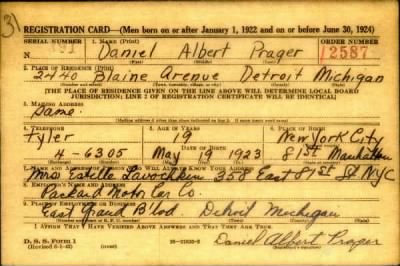 REGISTRATION CARD—(Men born on or after January 1, 1922 and on or before June 30, 1924)
SERIAL NUMBER 1. NAME (Print) ORDER NUMBER
N Daniel Albert Prager 12587
(First) (Middle) (Last)
2. PLACE OF RESIDENCE (Print)
2440 Blaine Avenue Detroit Michigan
(Number and street) (Town, township, village, or city) (County) (State)
[THE PLACE OF RESIDENCE GIVEN ON THE LINE ABOVE WILL DETERMINE LOCAL BOARD
JURISDICTION; LINE 2 OF REGISTRATION CERTIFICATE WILL BE IDENTICAL]
3. MAILING ADDRESS
Same
[Mailing address if other than place indicated on line 2. If same insert word same]
4. TELEPHONE 5. AGE IN YEARS 6. PLACE OF BIRTH
Tyler 19 New York City
DATE OF BIRTH
4-6305 May 19 1923 81st Manhattan
(Exchange) (Number) (Mo.) (Day) (Yr.) (Town or county) (State or country)
7. NAME AND ADDRESS OF PERSON WHO WILL ALWAYS KNOW YOUR ADDRESS
Mrs Estelle 350 East 81st St NYC
8. EMPLOYER'S NAME AND ADDRESS
Packard Motor Car Co.
9. PLACE OF EMPLOYMENT OR BUSINESS
East Grand Blvd Detroit Michigan
(Number and street or R. F. D. number) (Town) (County) (State)
I AFFIRM THAT I HAVE VERIFIED ABOVE ANSWERS AND THAT THEY ARE TRUE.
D. S. S. Form 1
(Revised 6-9-42) Daniel Albert Prager
(Registrant's signature)